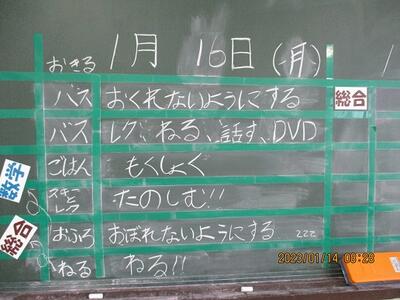 おきる 1月 16日 (月)
バス おくれないようにする 総合
バス レク、ねる、話す、DVD
ごはん もくしょく
スキー レク たのしむ!!
おふろ おぼれないようにする zzz
総合
ねる ねる!!
2023/01/14 09:28